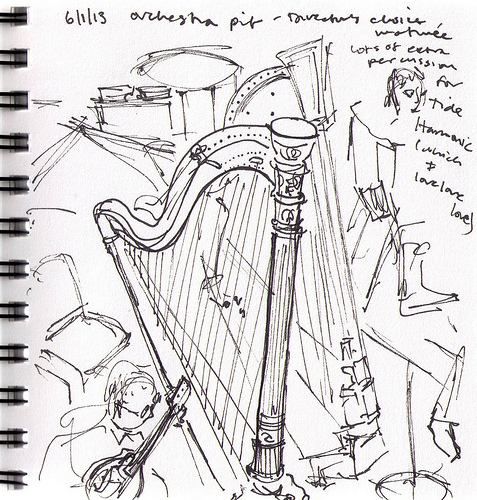 6/1/13 orchestra pit - director's choice
matinée
lots of extra
percussion
for
Tide
Harmonic
(which
I
love love
love)